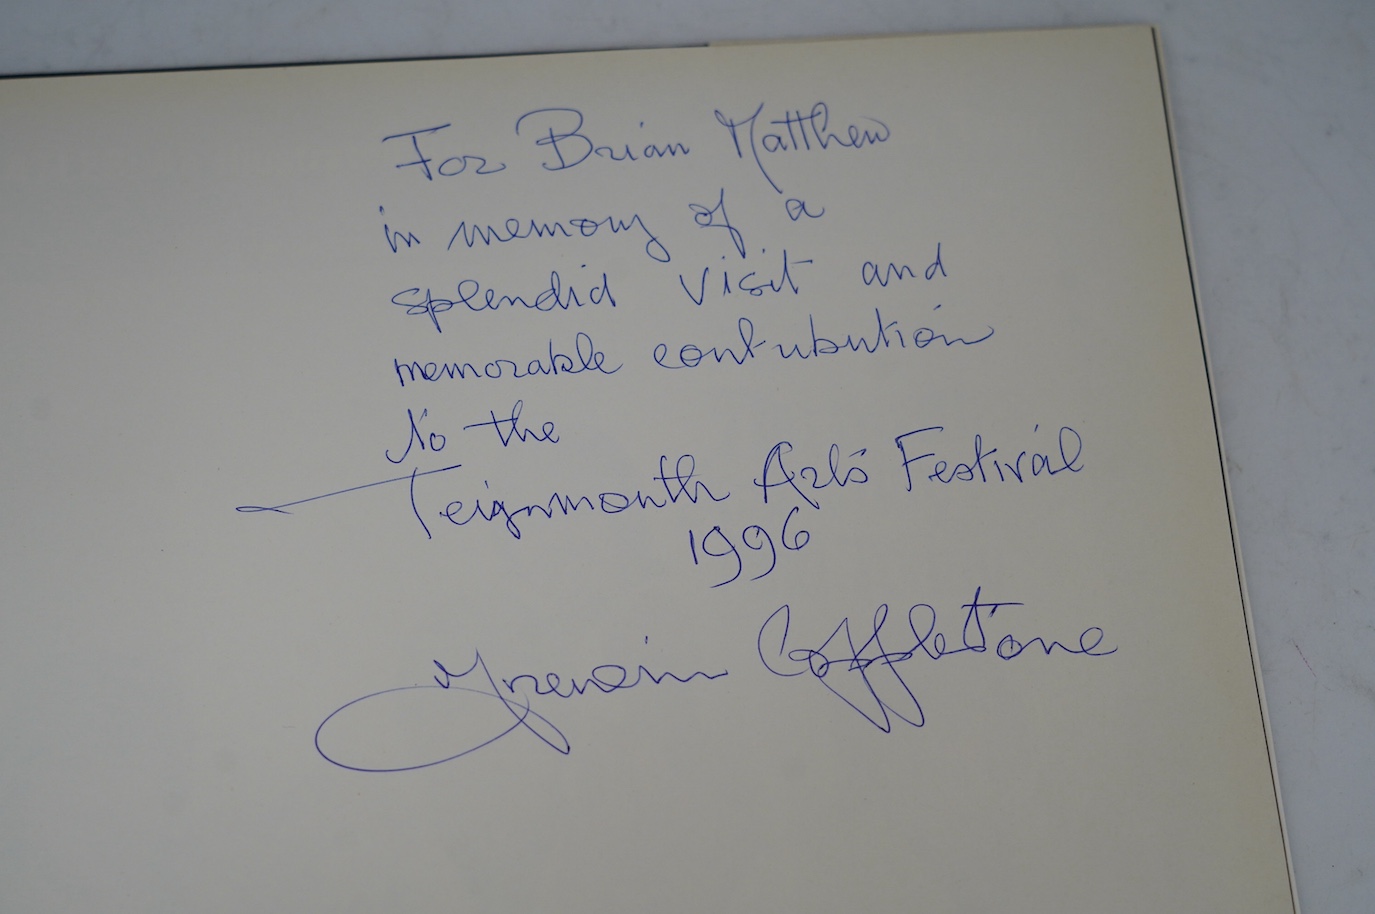 For Brian Matthew
in memory of a
splendid visit and
memorable contribution
to the
Teignmouth Arts Festival
1996